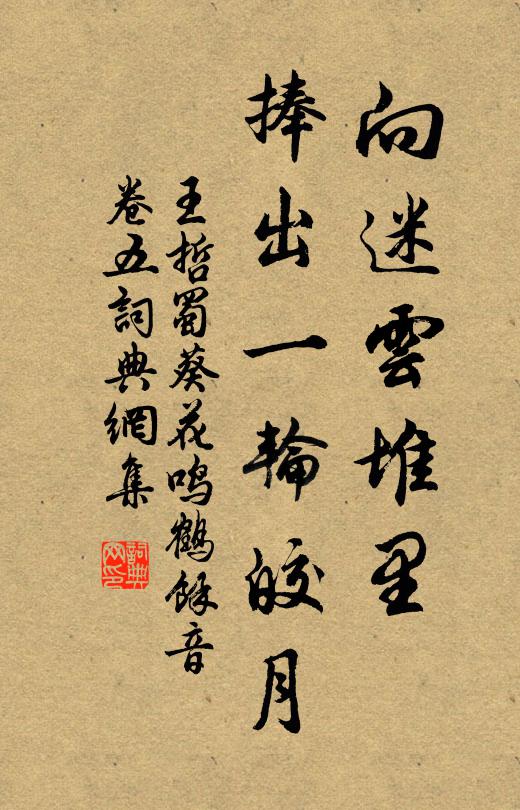 向迷雲堆里
捧出一輪皎月
王哲蜀葵花鳴鶴餘音
卷五詞典網集
詞典
网印